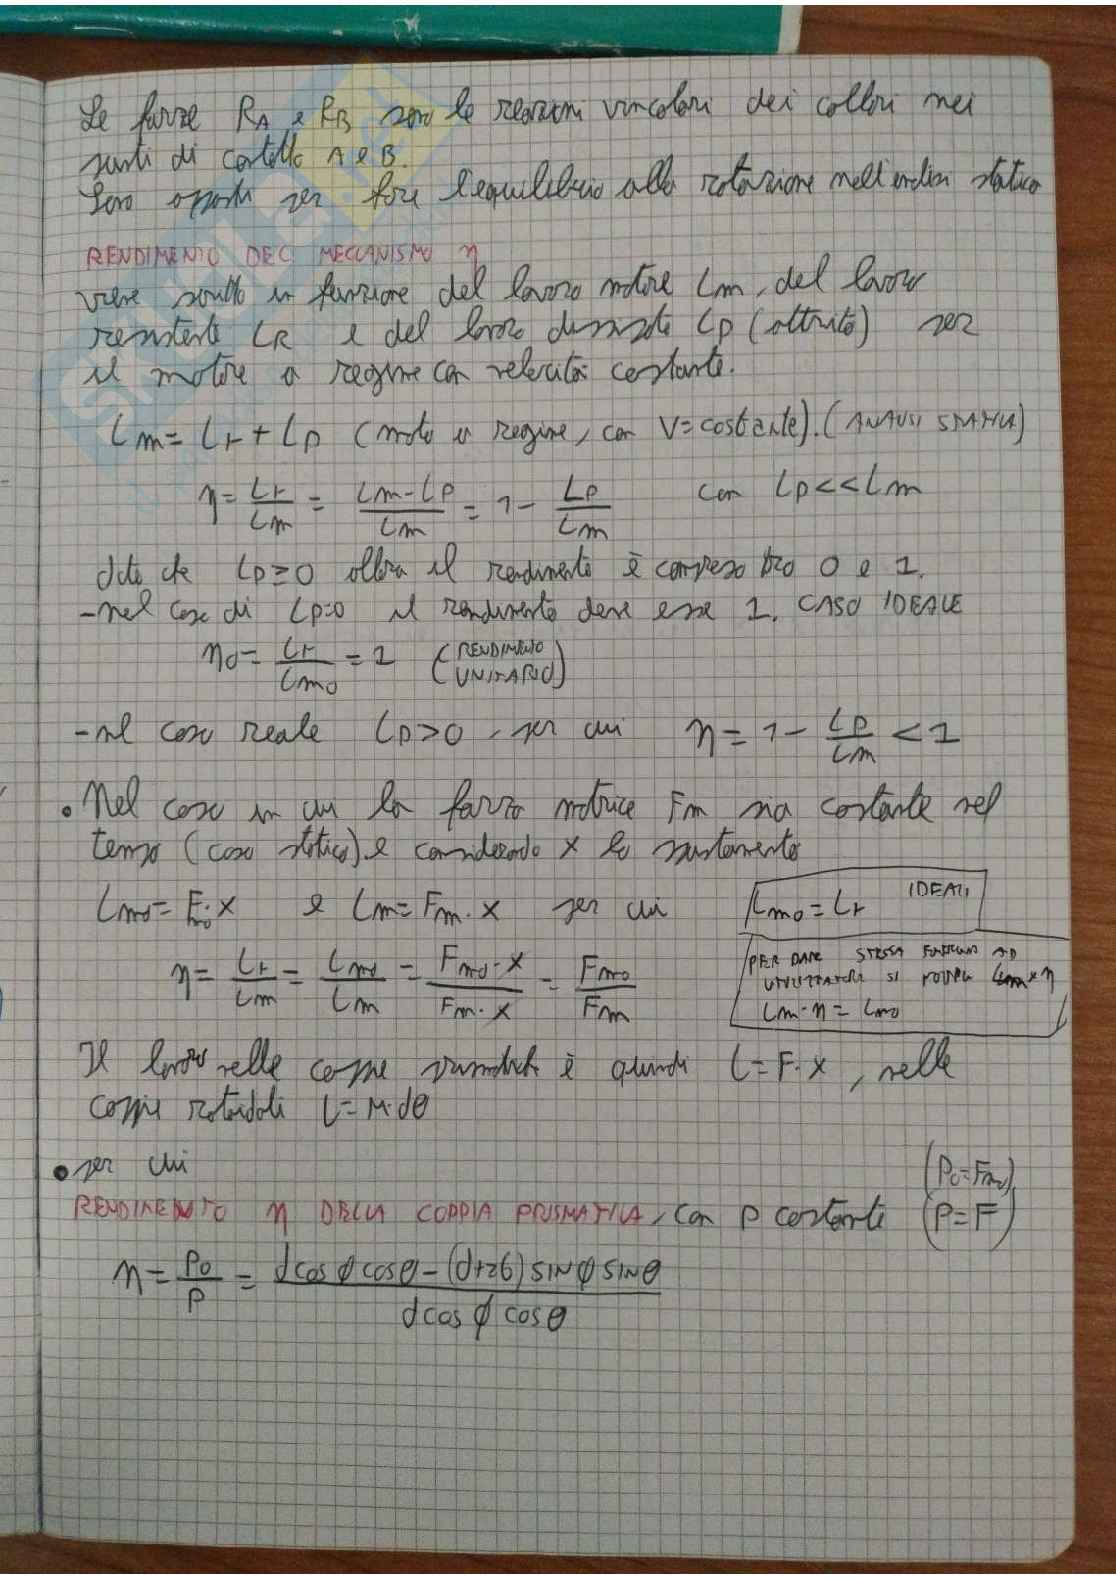 Le forze RA e RB sono le reazioni vincolari dei collari nei
punti di contatto A e B.
Sono opposti per fare l'equilibrio alla rotazione nell'analisi statica
RENDIMENTO DEL MECCANISMO η
viene scritto in funzione del lavoro motore Lm, del lavoro
resistente LR e del lavoro dissipato LP (attrito) per
il motore a regime con velocità costante.
Lm = Lr + LP (moto a regime, con V = costante). (ANALISI STATICA)
η = Lr/Lm = (Lm - LP)/Lm = 1 - LP/Lm con LP << Lm
dato che LP ≥ 0 allora il rendimento è compreso tra 0 e 1.
- nel caso di LP=0 il rendimento deve esse 1. CASO IDEALE
η0 = Lr/Lm0 = 1 (RENDIMENTO UNITARIO)
- nel caso reale LP > 0, per cui η = 1 - LP/Lm < 1
• Nel caso in cui la forza motrice Fm sia costante nel
tempo (caso statico). e considerando x lo spostamento
Lm0 = Fm0 · x e Lm = Fm · x per cui
Lm0 = Lr IDEALI
η = Lr/Lm = Lm0/Lm = Fm0 · x / Fm · x = Fm0/Fm
PER DARE STESSA AD
SI Lm × η
Lm · η = Lm0
Il lavoro nelle coppie prismatiche è quindi L = F · x, nelle
coppie rotoidali L = M · dθ
• per cui
RENDIMENTO η DELLA COPPIA PRISMATICA, con P costante (P0 = Fm0) (P = F)
η = P0/P = (d cos ϕ cos θ - (d+2b) SIN ϕ SIN θ) / (d cos ϕ cos θ)